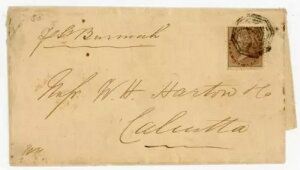 per Burmah
Messrs W. H. Harton & Co
Calcutta